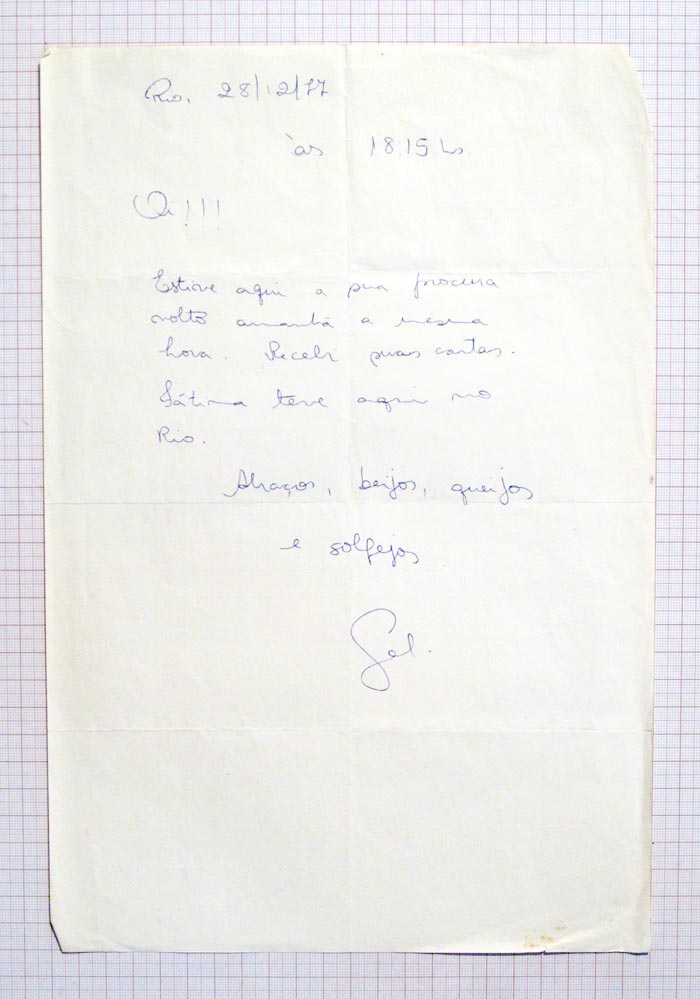 Rio, 28/12/77
às 18:15 hs.
Oi!!!
Estive aqui a sua procura
volto amanhã a mesma
hora. Recebi suas cartas.
Fátima teve aqui no
Rio.
Abraços, beijos, queijos
e solfejos